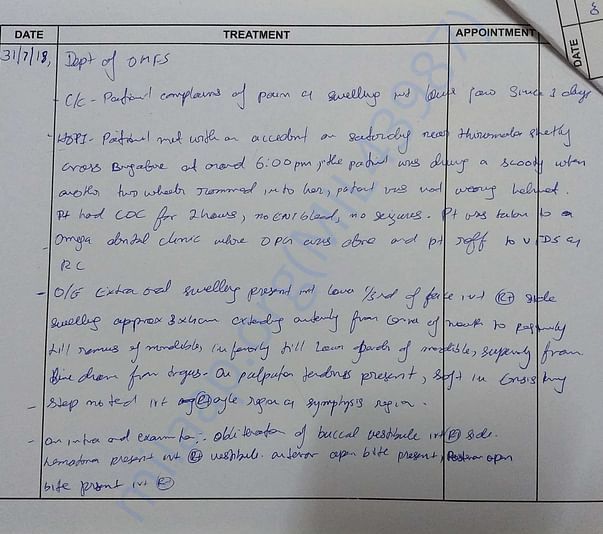 DATE TREATMENT APPOINTMENT DATE
31/7/18, Dept of OMFS
- C/C - Patient complains of pain & swelling irt lower jaw since 3 days
- HOPI - Patient met with an accident on saturday near
cross at around 6:00pm, the patient was a scooty when
another two wheeler rammed into her, patient was not wearing helmet.
Pt had LOC for 2 hours, no ENT bleed, no seizures. Pt was taken to a
- Omega dental clinic where OPG was done and pt reff to VIDS &
RC
- O/E Extra oral swelling present irt lower 1/3rd of face irt Rt side
swelling approx 3x4cm extending from of mouth to
till ramus of mandible, till of mandible, from
line drawn from tragus. On palpation present, soft in
- step noted irt region & symphysis region.
- On intra oral of buccal vestibule irt Rt side.
hematoma present irt Rt vestibule. anterior open bite present, Posterior open
bite present irt
milaap.org(MIL43987)